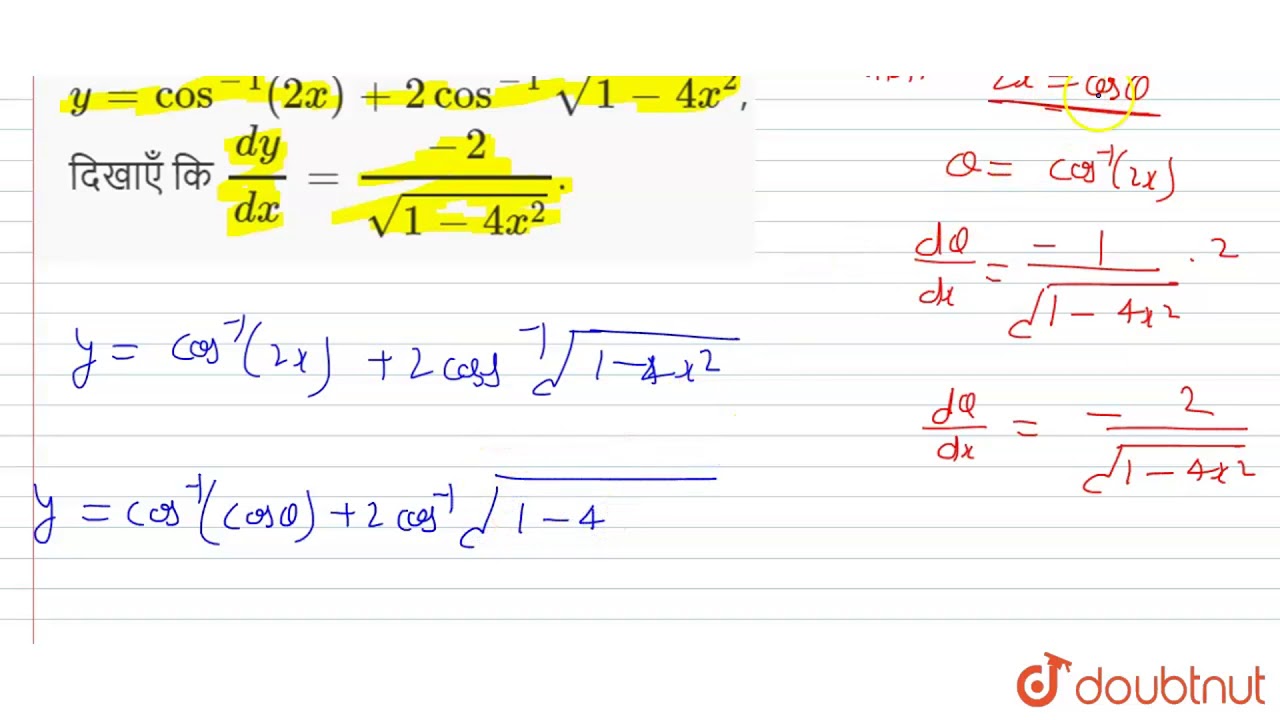 y = cos⁻¹(2x) + 2 cos⁻¹ √(1 − 4x²),
दिखाएँ कि dy/dx = −2/√(1 − 4x²).
y = cos⁻¹(2x) + 2 cos⁻¹ √(1 − 4x²)
y = cos⁻¹(cosθ) + 2 cos⁻¹ √(1 − 4
2x = cosθ
θ = cos⁻¹(2x)
dθ/dx = − 1/√(1 − 4x²) . 2
dθ/dx = − 2/√(1 − 4x²)
doubtnut